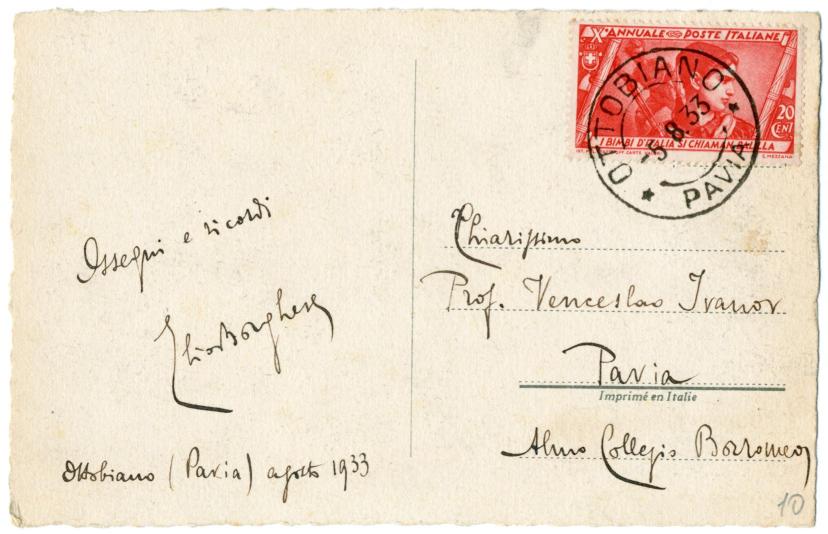 Xº ANNUALE POSTE ITALIANE
20
CENT
I BIMBI D'ITALIA SI CHIAMAN BALILLA
C. MEZZANA
OTTOBIANO
-5.8.33
PAVIA
Ossequi e ricordi
Elio Borghese
Ottobiano (Pavia) agosto 1933
Chiarissimo
Prof. Venceslao Ivanov
Pavia
Imprimé en Italie
Almo Collegio Borromeo
10